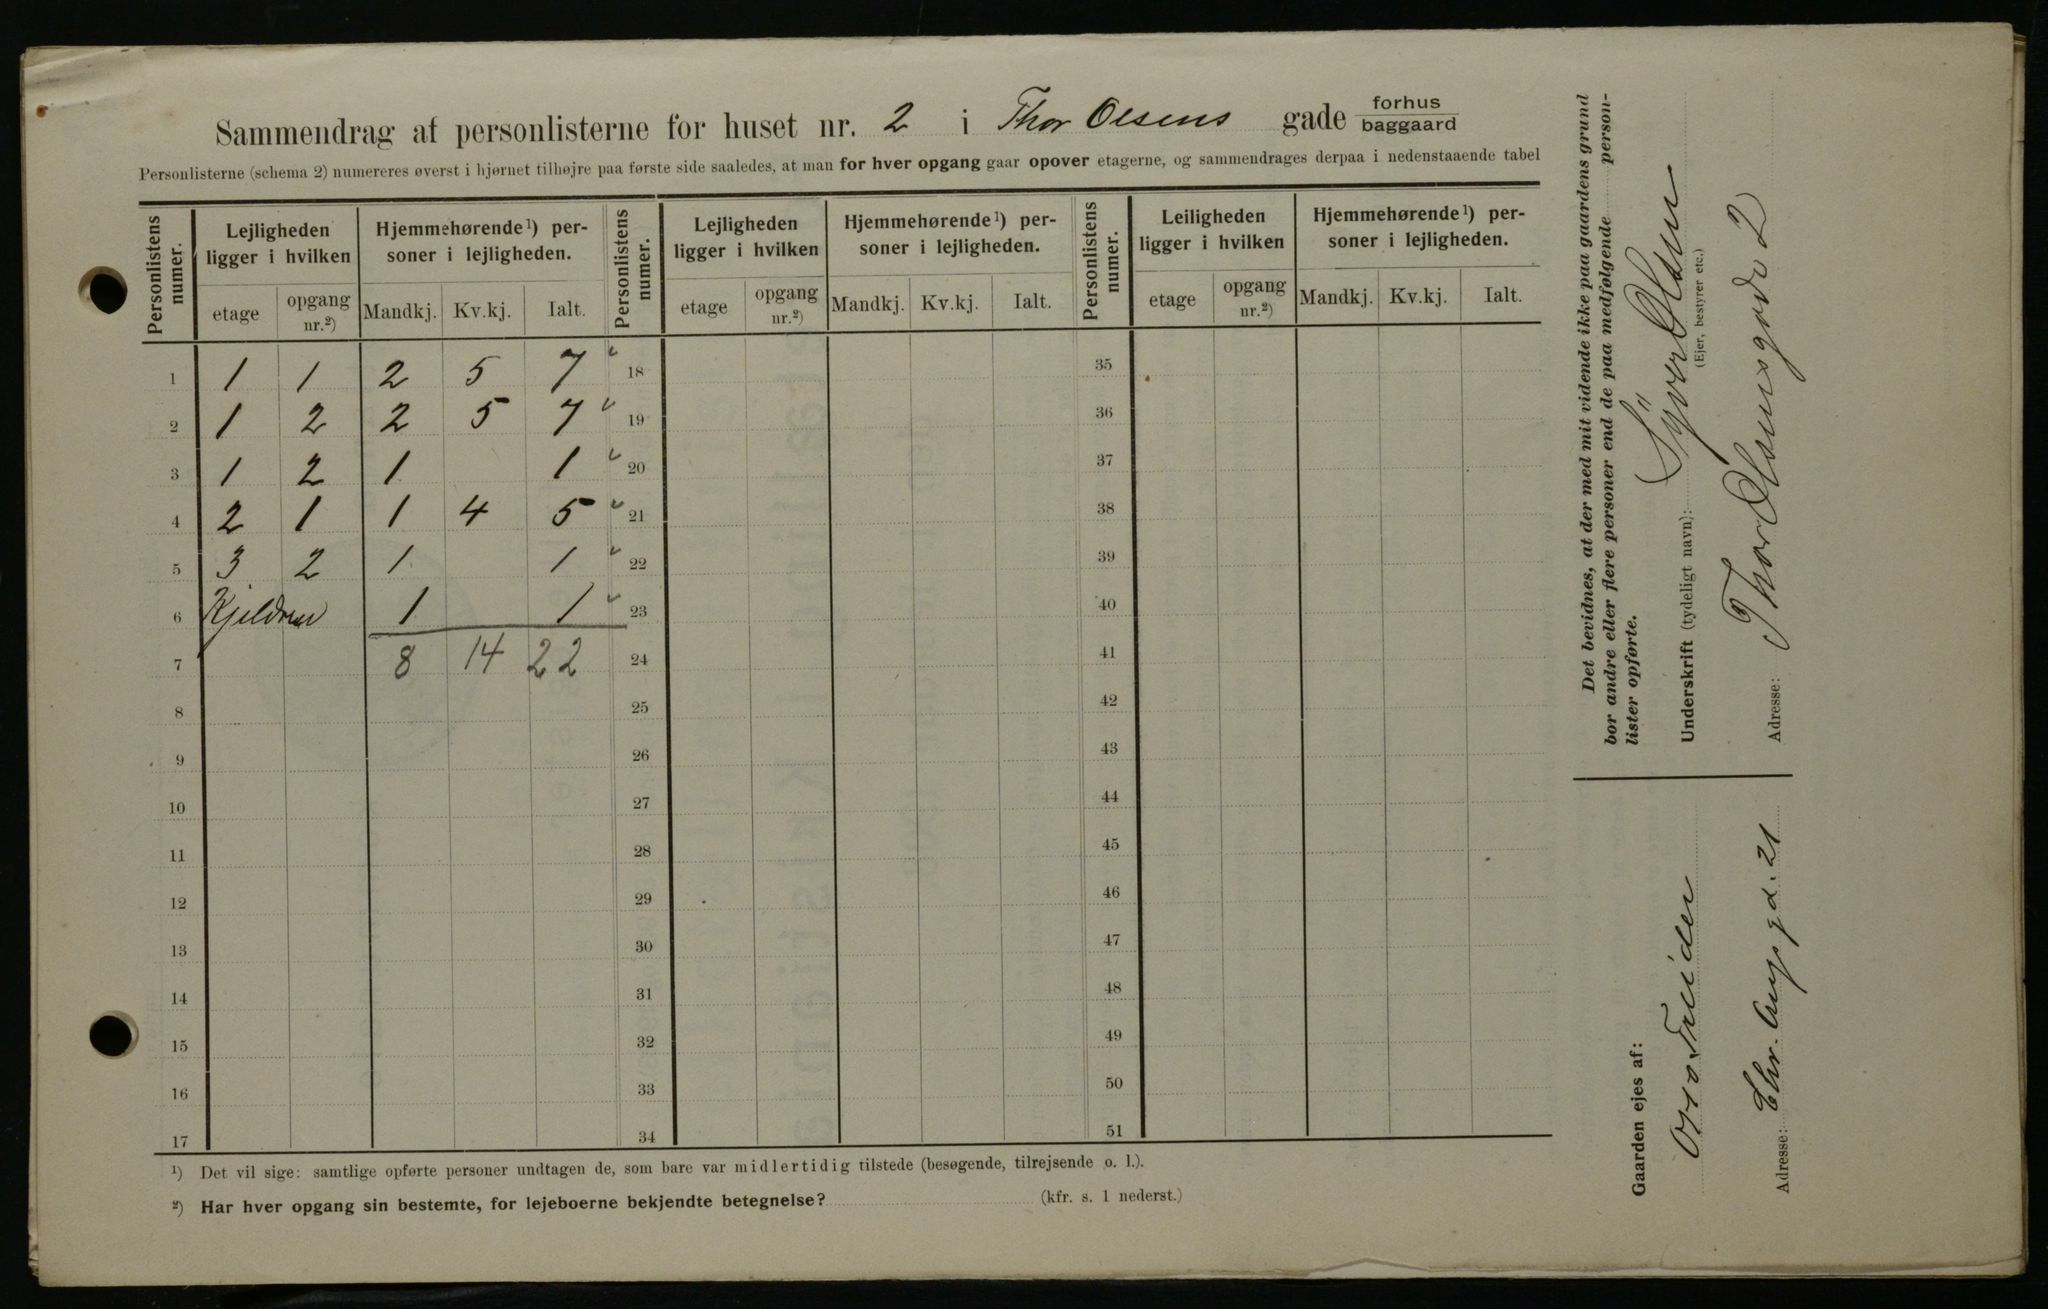 Sammendrag af personlisterne for huset nr. 2 i Thor Olsens gade forhus baggaard
Personlisterne (schema 2) numereres øverst i hjørnet tilhøjre paa første side saaledes, at man for hver opgang gaar opover etagerne, og sammendrages derpaa i nedenstaaende tabel
Personlistens numer. Lejligheden ligger i hvilken Hjemmehørende¹) personer i lejligheden. Personlistens numer. Lejligheden ligger i hvilken Hjemmehørende¹) personer i lejligheden. Personlistens numer. Leiligheden ligger i hvilken Hjemmehørende¹) personer i lejligheden.
etage opgang nr.²) Mandkj. Kv.kj. Ialt. etage opgang nr.²) Mandkj. Kv.kj. Ialt. etage opgang nr.²) Mandkj. Kv.kj. Ialt.
1 1 1 2 5 7 18 35
2 1 2 2 5 7 19 36
3 1 2 1 1 20 37
4 2 1 1 4 5 21 38
5 3 2 1 1 22 39
6 Kjelderen 1 1 23 40
7 8 14 22 24 41
8 25 42
9 26 43
10 27 44
11 28 45
12 29 46
13 30 47
14 31 48
15 32 49
16 33 50
17 34 51
¹) Det vil sige: samtlige opførte personer undtagen de, som bare var midlertidig tilstede (besøgende, tilrejsende o. l.).
²) Har hver opgang sin bestemte, for lejeboerne bekjendte betegnelse? (kfr. s. 1 nederst.)
Det bevidnes, at der med mit vidende ikke paa gaardens grund
bor andre eller flere personer end de paa medfølgende person-
lister opførte.
Underskrift (tydeligt navn): Syver Olsen
(Ejer, bestyrer etc.)
Adresse: Thor Olsensgade 2
Gaarden ejes af:
Adresse: Chr. Augs gd. 21